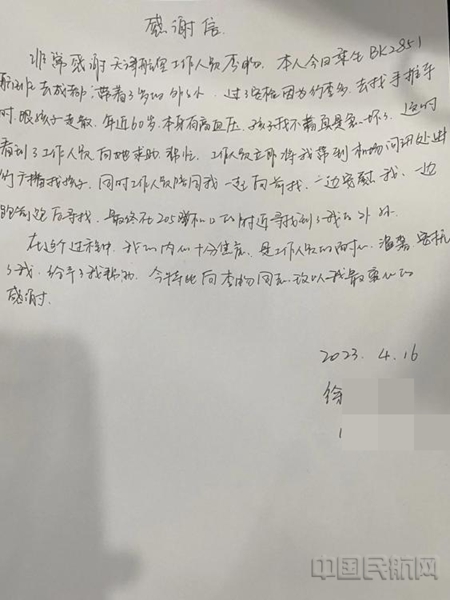 感谢信
非常感谢天津航空工作人员李昀。本人今日乘坐BK2851
航班去成都 带着3岁的外孙 过了安检因为行李多,去找手推车
时,跟孩子走散,年近60岁本身有高血压,孩子找不着真是急坏了,这时
看到了工作人员向她求助帮忙,工作人员立即将我带到机场问讯处进
行广播找孩子,同时工作人员陪同我一起向前找,一边安慰我,一边
跑前跑后寻找,最终在205登机口的附近寻找到了我的外孙
在这个过程中,我的内心十分焦虑,是工作人员的耐心,温馨 安抚
了我,给予了我帮助,今特此向李昀同志致以我最衷心的
感谢。
2023.4.16
徐
中国民航网